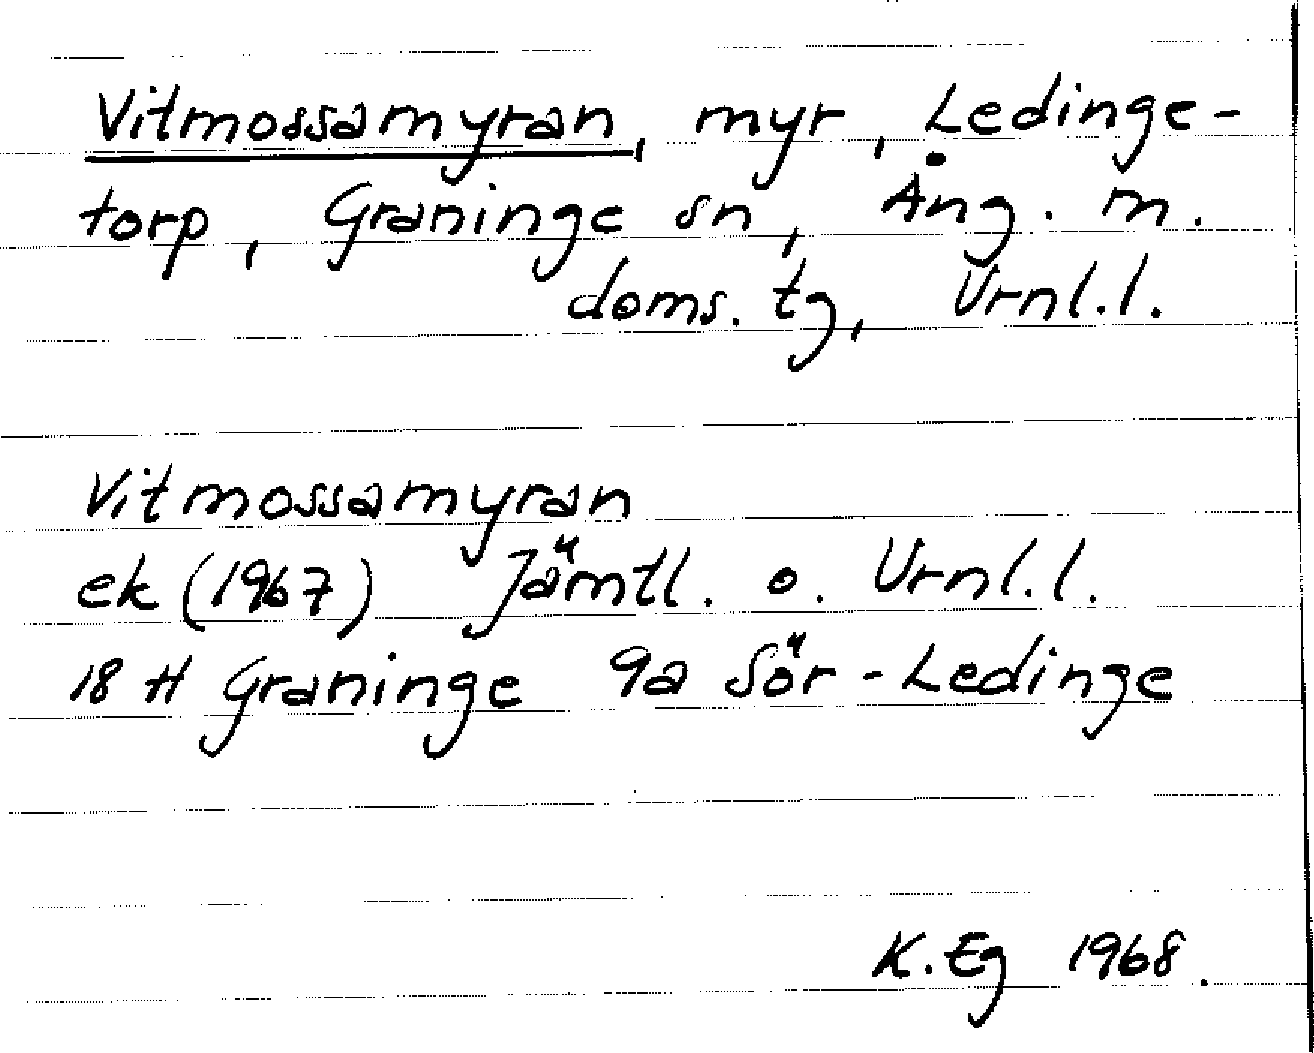 Vitmossamyran, myr, Ledinge-
torp, Graninge sn, Ång. m.
doms. tg, Vrnl.l.
Vitmossamyran
ek (1967) Jämtl. o. Vrnl.l.
18 H Graninge 9a Sör-Ledinge
K. Eg 1968.